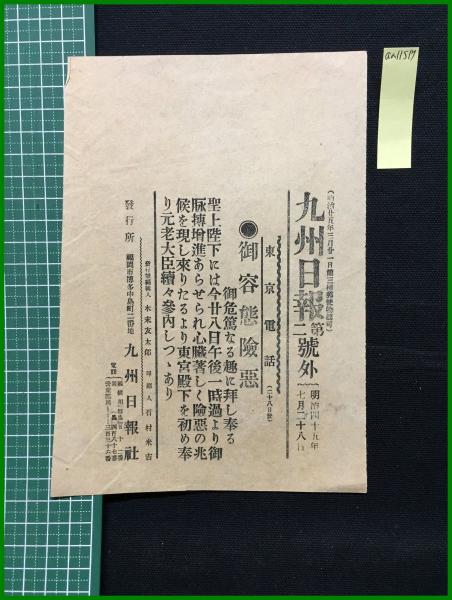 an11517
(明治廿五年三月廿一日第三種郵便物認可)
九州日報 第二號外
明治四十五年
七月二十八日
東京電話(二十八日發)
●御容態險惡
御危篤なる趣に拜し奉る
聖上陛下には今廿八日午後一時過より御
脉搏増進あらせられ心臓著しく險惡の兆
候を現し來りたるより東宮殿下を初め奉
り元老大臣續々參內しつゝあり
發行兼編輯人 末末友太郎 印刷人 石村米吉
發行所 福岡市博多中島町二番地 九州日報社
電話